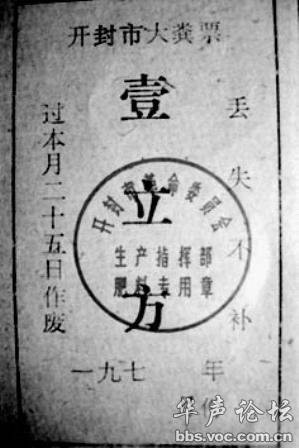 开封市大粪票
壹立方
丢失不补
过本月二十五日作废
开封市革命委员会
生产指挥部
肥料专用章
一九七 年
华声论坛
bbs.voc.com.cn